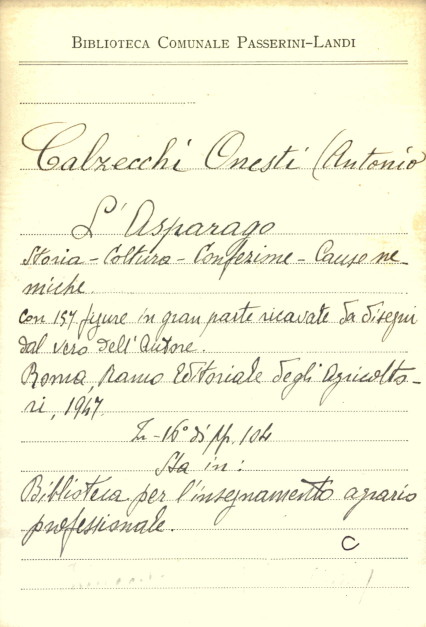 BIBLIOTECA COMUNALE PASSERINI-LANDI
Calzecchi Onesti (Antonio
L'Asparago
Storia - Coltura - Confezione - Cause ne-
miche.
con 157 figure in gran parte ricavate da disegni
dal vero dell'Autore.
Roma, Ramo Editoriale degli Agricolto-
ri, 1947.
16° di pp. 104
Sta in:
Biblioteca per l'insegnamento agrario
professionale.
C